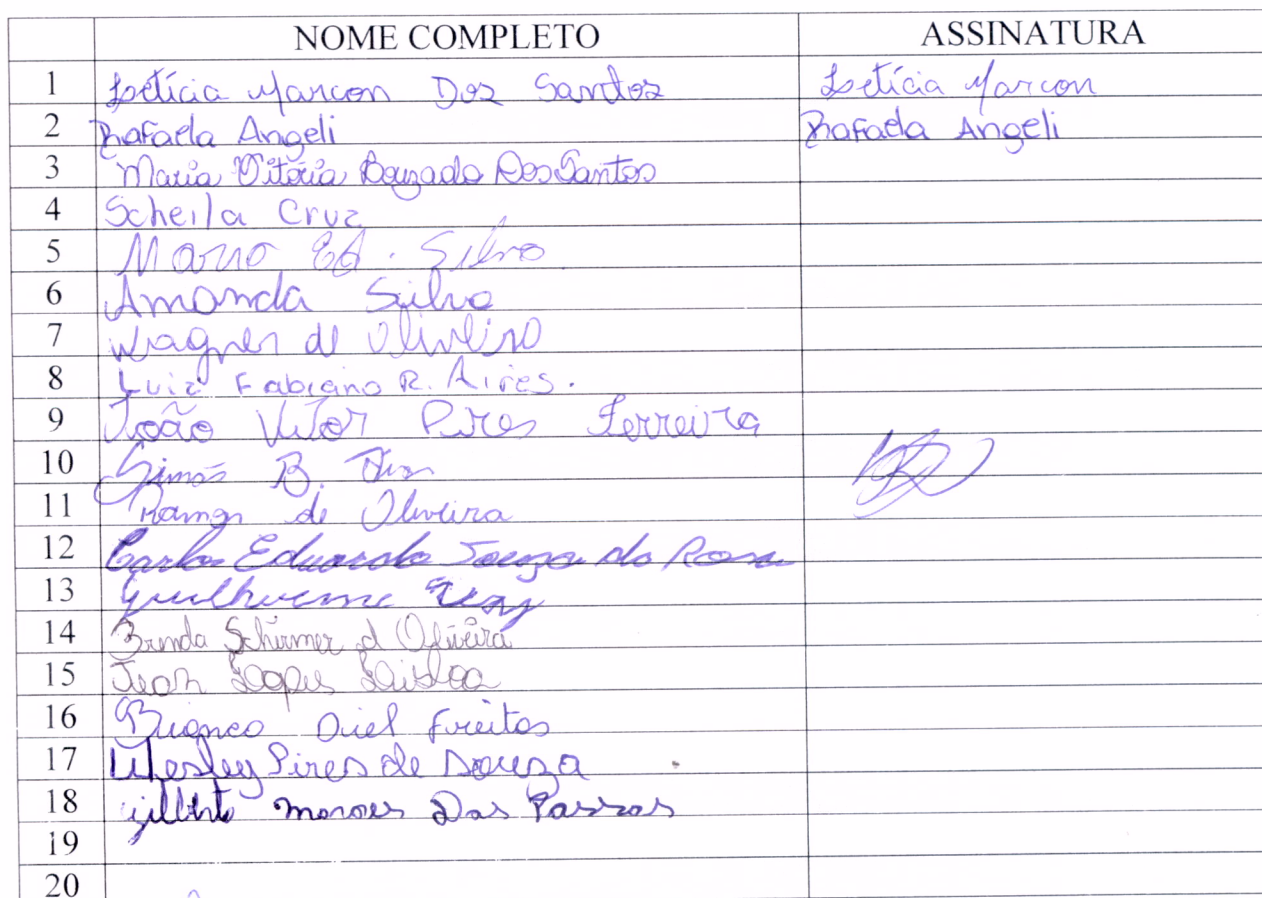 NOME COMPLETO ASSINATURA
1 Letícia Marcon Dos Santos Letícia Marcon
2 Rafaela Angeli Rafaela Angeli
3 Maria Vitória Dos Santos
4 Scheila Cruz
5 Mario Ed. Silva
6 Amanda Silva
7 Wagner de Oliveira
8 Luiz Fabiano R. Aires.
9 João Vitor Pires Ferreira
10 Simão B.
11 Ramon de Oliveira
12 Carlos Eduardo Souza da Rosa
13 Guilherme
14 Brenda Schirmer d Oliveira
15 Jean Lopes Lisboa
16 Oriel Freitas
17 Wesley Pires de Souza
18 Gilberto Moraes Dos Passos
19
20